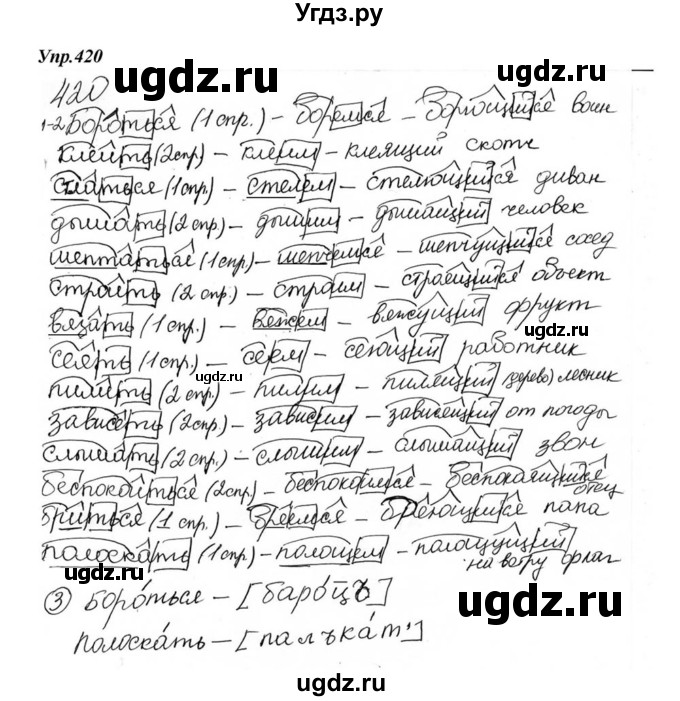 Угдз.ру
Упр.420
420
ugdz.ru
1-2. Бороться (1 спр.) – боремся – борющийся воин
клеить (2 спр) – клеим – клеящий скотч
стлаться (1 спр.) – стелем – стелющийся диван
дышать (2 спр.) – дышим – дышащий человек
шептаться (1 спр.) – шепчемся – шепчущийся сосед
строить (2 спр.) – строим – строящийся объект
вязать (1 спр.) – вяжем – вяжущий фрукт
ugdz.ru
сеять (1 спр.) – сеем – сеющий работник
ugdz.ru
пилить (2 спр.) – пилим – пилящий (дерево) лесник
зависеть (2 спр.) – зависим – зависящий от погоды
слышать (2 спр.) – слышим – слышащий звон
беспокоиться (2 спр.) – беспокоимся – беспокоящийся отец
бриться (1 спр.) – бреемся – бреющийся папа
полоскать (1 спр.) – полощем – полощущий на ветру флаг
③ Бороться – [баро́цъ]
ugdz.ru
полоска́ть – [палъка́т']
ugdz.ru